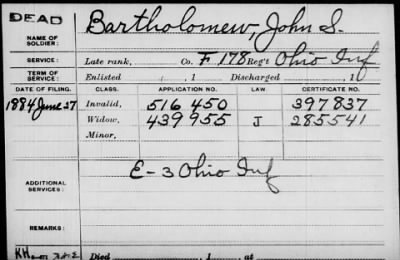 DEAD
NAME OF SOLDIER: Bartholomew, John S.
SERVICE: Late rank, Co. F 178 Reg't Ohio Inf
TERM OF SERVICE: Enlisted , 1 Discharged , 1
DATE OF FILING. CLASS. APPLICATION NO. LAW. CERTIFICATE NO.
1884 June 27 Invalid, 516 450 397837
Widow, 439955 J 285541
Minor,
ADDITIONAL SERVICES: E-3 Ohio Inf
REMARKS:
Died , 1 , at